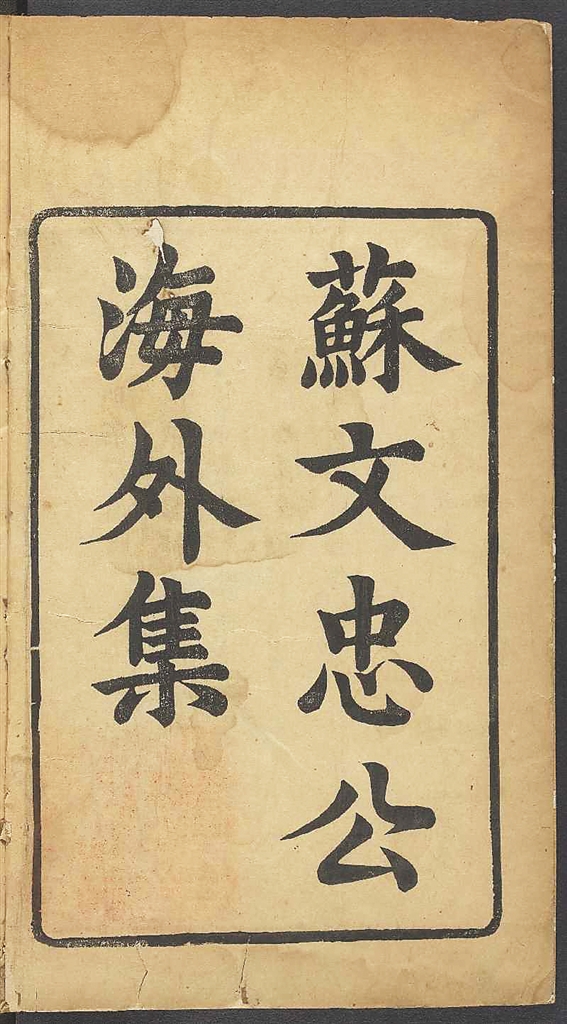 蘇文忠公
海外集